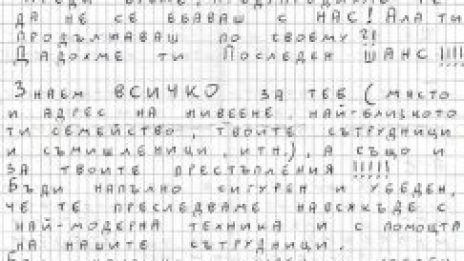 ПРЕДИ ВРЕМЕ, ПРЕДУПРЕДИХМЕ ТЕ
ДА НЕ СЕ ЕБАВАШ С НАС! АЛА ТИ
ПРОДЪЛЖАВАШ ПО СВОЕМУ?!
ДАДОХМЕ ТИ ПОСЛЕДЕН ШАНС!!!!
ЗНАЕМ ВСИЧКО ЗА ТЕБ (МЯСТО
И АДРЕС НА ЖИВЕЕНЕ, НАЙ-БЛИЗКОТО
ТИ СЕМЕЙСТВО, ТВОИТЕ СЪТРУДНИЦИ
И СЪМИШЛЕНИЦИ, ИТН.), А СЪЩО И
ЗА ТВОИТЕ ПРЕСТЪПЛЕНИЯ!!!!!
БЪДИ НАПЪЛНО СИГУРЕН И УБЕДЕН,
ЧЕ ТЕ ПРЕСЛЕДВАМЕ НАВСЯКЪДЕ С
НАЙ-МОДЕРНА ТЕХНИКА И С ПОМОЩТА
НА НАШИТЕ СЪТРУДНИЦИ.